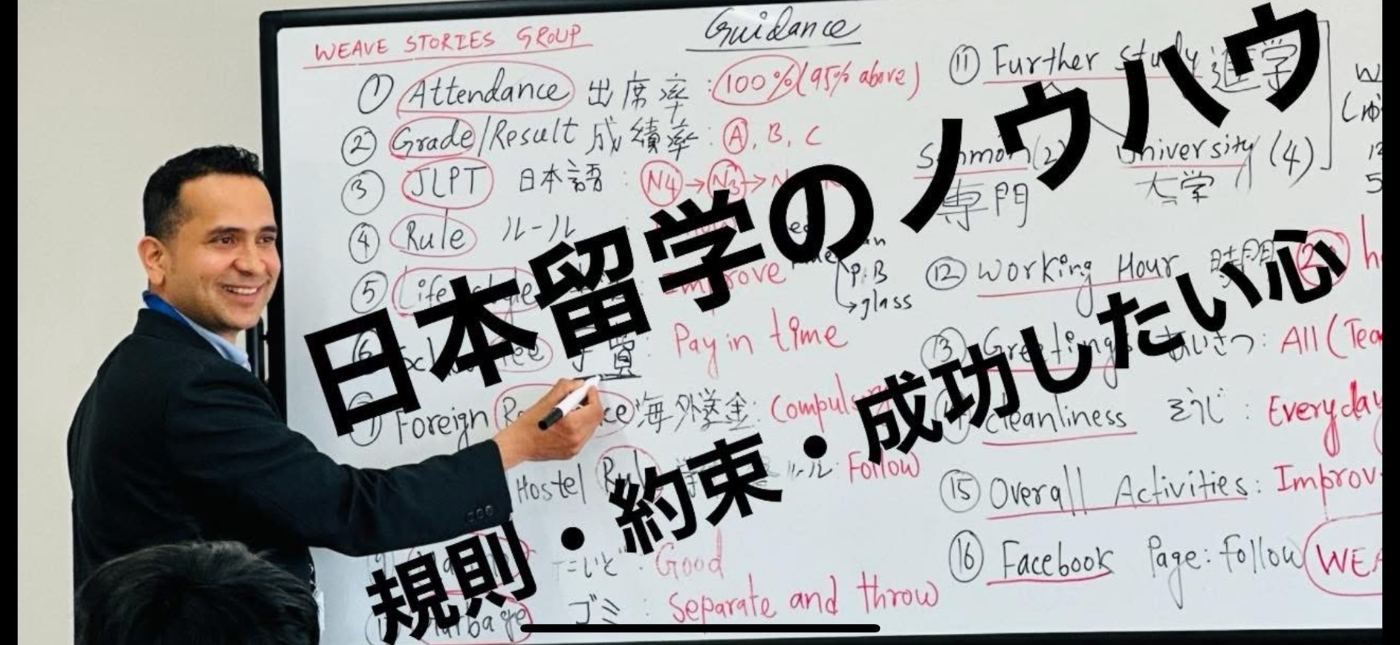 WEAVE STORIES GROUP
Guidance
① Attendance 出席率 : 100% (95% above)
② Grade/Result 成績率 : A, B, C
③ JLPT 日本語 : N4 → N3 →
④ Rule ルール
⑤ Life
Pay in time
Foreign 海外送金 : Compulsory
Hostel Rule ルール : Follow
: Good
ゴミ : Separate and throw
p.B
glass
⑪ Further study 進学
Senmon (2) University (4)
専門 大学
⑫ Working Hour 時間
⑬ Greetings あいさつ : All (Tea
Cleanliness そうじ : Everyday
⑮ Overall Activities : Improv
⑯ Facebook Page : Follow (WEA
日本留学のノウハウ
規則・約束・成功したい心